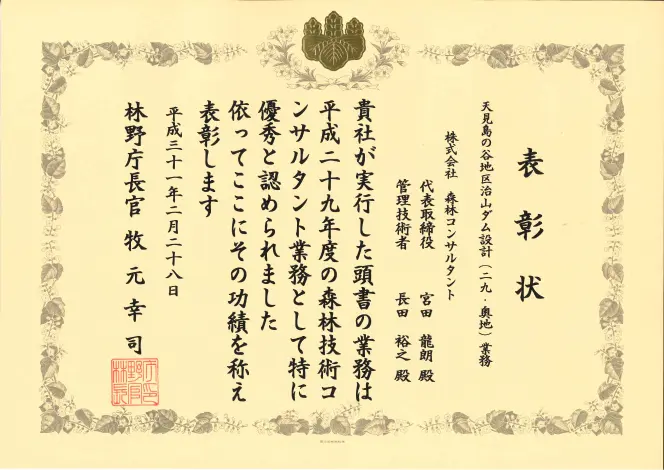 表彰状
天見島の谷地区治山ダム設計(二九・奥地)業務
株式会社 森林コンサルタント
代表取締役 宮田 龍朗 殿
管理技術者 長田 裕之 殿
貴社が実行した頭書の業務は
平成二十九年度の森林技術コ
ンサルタント業務として特に
優秀と認められました
依ってここにその功績を称え
表彰します
平成三十一年二月二十八日
林野庁長官 牧元幸司